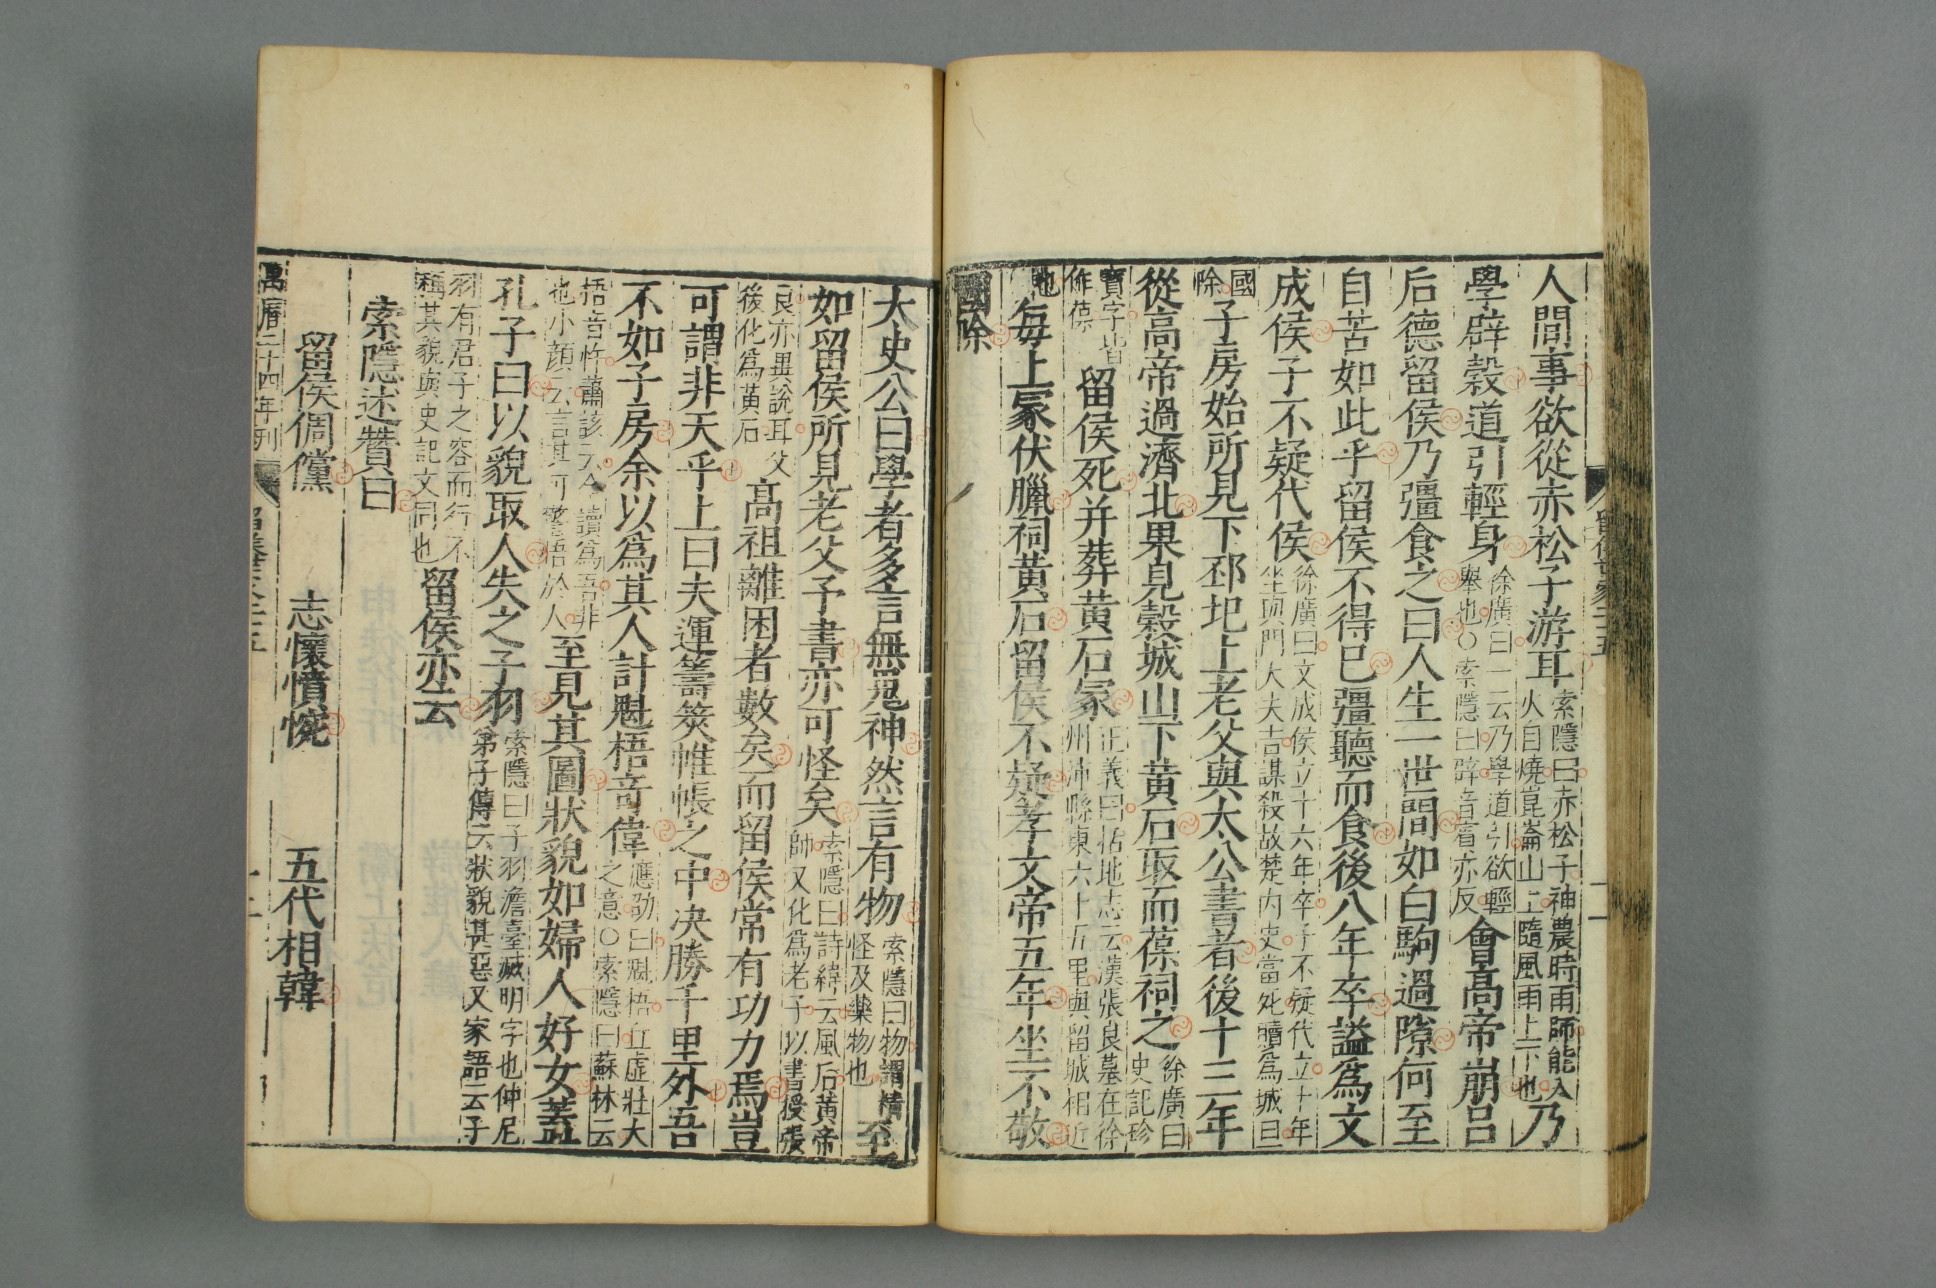 留侯世家二十五
十一
人間事欲從赤松子游耳索隱曰赤松子神農時雨師能入火自燒崑崙山上隨風雨上下也乃
學辟穀道引輕身徐廣曰一云乃學道引欲輕舉也○索隱曰辟音賓亦反會高帝崩呂
后德留侯乃彊食之曰人生一世間如白駒過隙何至
自苦如此乎留侯不得已彊聽而食後八年卒謚爲文
成侯子不疑代侯徐廣曰文成侯立十六年卒子不疑代立十年坐與門大夫吉謀殺故楚内史當死贖爲城旦
國除子房始所見下邳圯上老父與太公書者後十三年
從高帝過濟北果見穀城山下黃石取而葆祠之徐廣曰史記珍
寶字皆作葆留侯死并葬黃石冢正義曰括地志云漢張良墓在徐州沛縣東六十五里與留城相近
也每上冢伏臘祠黃石留侯不疑孝文帝五年坐不敬
國除
太史公曰學者多言無鬼神然言有物索隱曰物謂精怪及藥物也至
如留侯所見老父予書亦可怪矣索隱曰詩緯云風后黃帝師又化爲老子以書授張
良亦異說耳父後化爲黃石高祖離困者數矣而留侯常有功力焉豈
可謂非天乎上曰夫運籌筴帷帳之中决勝千里外吾
不如子房余以爲其人計魁梧奇偉應劭曰魁梧丘虛壯大之意○索隱曰蘇林云
梧音忤蕭該云今讀爲吾非也小顏云言其可驚悟於人至見其圖狀貌如婦人好女蓋
孔子曰以貌取人失之子羽索隱曰子羽澹臺滅明字也仲尼弟子傳云狀貌甚惡又家語云子
羽有君子之容而行不稱其貌與史記文同也留侯亦云
索隱述贊曰
留侯倜儻 志懷憤惋 五代相韓
萬曆二十四年刊
十二